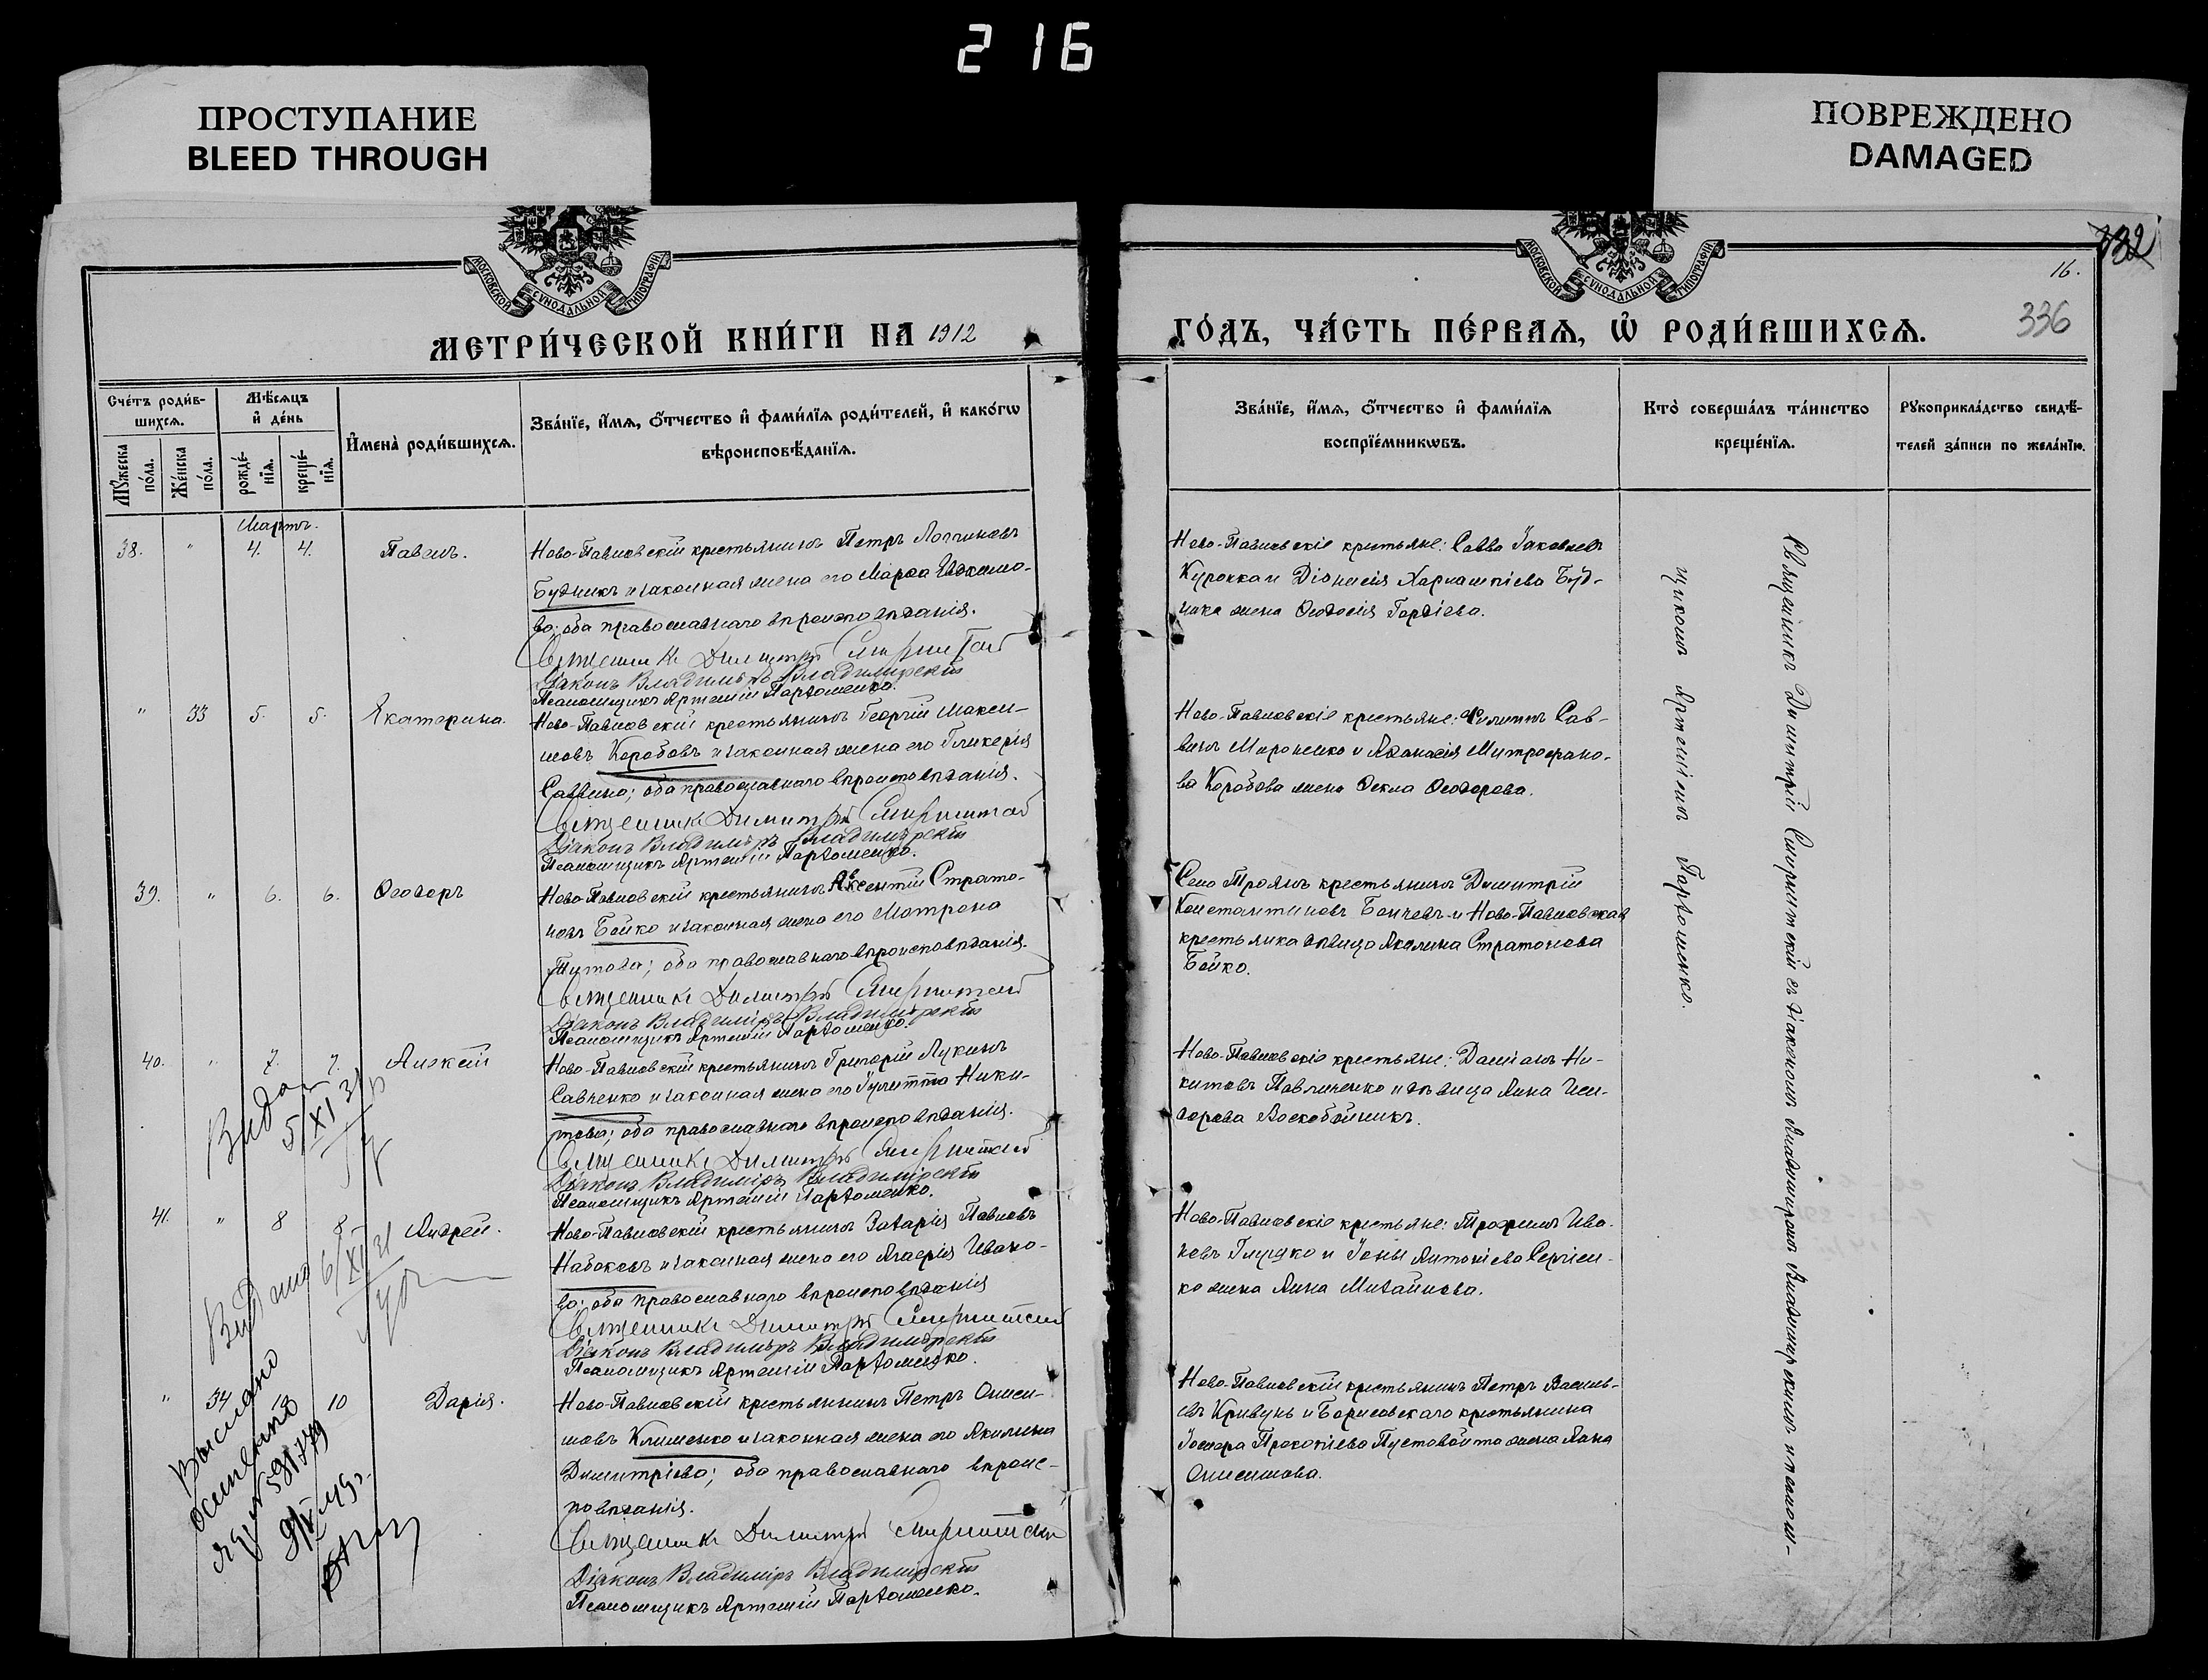 216
ПРОСТУПАНИЕ
BLEED THROUGH
ПОВРЕЖДЕНО
DAMAGED
МОСКОВСКОЙ СѴНОДАЛЬНОЙ ТИПОГРАФІИ
МОСКОВСКОЙ СѴНОДАЛЬНОЙ ТИПОГРАФІИ
332
16.
336
МЕТРИ́ЧЕСКОЙ КНИ́ГИ НА 1912
ГО́ДЪ, ЧА́СТЬ ПЕ́РВАЯ, Ѡ҆ РОДИ́ВШИХСЯ.
Сче́тъ роди́в-
шихся.
Мѣ́сяцъ
и҆ де́нь
Мꙋ́жеска
по́ла.
Же́нска
по́ла.
рожде́-
нїя.
креще́-
нїя.
И҆мена̀ роди́вшихся.
Зва́нїе, и҆́мя, ѻ҆́тчество и҆ фами́лїя роди́телей, и҆ како́гѡ
вѣроисповѣ́данїя.
Зва́нїе, и҆́мя, ѻ҆́тчество и҆ фами́лїя
воспрїе́мникѡвъ.
Кто̀ соверша́лъ та́инство
креще́нїя.
Рꙋкоприкла́дство свидѣ́-
телей за́писи по жела́нїю.
Мартъ.
38. " 4. 4. Павелъ.
Ново-Павловскій крестьянинъ Петръ Логгиновъ
Будникъ и законная жена его Марѳа Евдокимо-
ва; оба православнаго вѣроисповѣданія.
Священникъ Димитрій Смиритскій
Діаконъ Владиміръ Владимірскій
Псаломщикъ Артемій Пархоменко.
Ново-Павловскіе крестьяне: Савва Іаковлевъ
Курокка и Діонисія Харлампіева Буд-
ника жена Ѳеодосія Гордіева.
" 33 5. 5. Екатерина.
Ново-Павловскій крестьянинъ Георгій Макси-
мовъ Коробовъ и законная жена его Гликерія
Саввина; оба православнаго вѣроисповѣданія.
Священникъ Димитрій Смиритскій
Діаконъ Владиміръ Владимірскій
Псаломщикъ Артемій Пархоменко.
Ново-Павловскіе крестьяне: Филиппъ Сав-
винъ Мироненко и Аѳанасія Митрофано-
ва Коробова жена Ѳекла Ѳеодорова.
39. " 6. 6. Ѳеодоръ
Ново-Павловскій крестьянинъ Авксентій Страто-
новъ Бойко и законная жена его Матрона
Титова; оба православнаго вѣроисповѣданія.
Священникъ Димитрій Смиритскій
Діаконъ Владиміръ Владимірскій
Псаломщикъ Артемій Пархоменко.
Село Троянъ крестьянинъ Димитрій
Константиновъ Бончевъ и Ново-Павловская
крестьянка дѣвица Акилина Стратонова
Бойко.
40. " 7. 7. Алексій
Ново-Павловскій крестьянинъ Григорій Лукинъ
Савченко и законная жена его Іулитта Ники-
това; оба православнаго вѣроисповѣданія.
Священникъ Димитрій Смиритскій
Діаконъ Владиміръ Владимірскій
Псаломщикъ Артемій Пархоменко.
Ново-Павловскіе крестьяне: Даміанъ Ни-
китовъ Павличенко и дѣвица Анна Иси-
дорова Воскобойникъ.
Видан
5/XI 31
41. " 8 8. Андрей.
Ново-Павловскій крестьянинъ Захарія Павловъ
Набоковъ и законная жена его Агаѳія Ивано-
ва; оба православнаго вѣроисповѣданія
Священникъ Димитрій Смиритскій
Діаконъ Владиміръ Владимірскій
Псаломщикъ Артемій Пархоменко.
Ново-Павловскіе крестьяне: Трофимъ Ива-
новъ Глушко и Іоны Антоніева Сергіен-
ко жена Анна Михайлова.
Видано 6/XII 31
" 34 10 10 Дарія.
Ново-Павловскій крестьянинъ Петръ Ониси-
мовъ Клименко и законная жена его Акилина
Димитріева; оба православнаго вѣроис-
повѣданія.
Священникъ Димитрій Смиритскій
Діаконъ Владиміръ Владимірскій
Псаломщикъ Артемій Пархоменко.
Ново-Павловскій крестьянинъ Петръ Василь-
евъ Кривунь и Борисовскаго крестьянина
Іосифа Прокопіева Пустовойта жена Анна
Онисимова.
Выслано
Священникъ Димитрій Смиритскій съ діакономъ Владиміромъ Владимірскимъ и псалом-
щикомъ Артеміемъ Пархоменко.